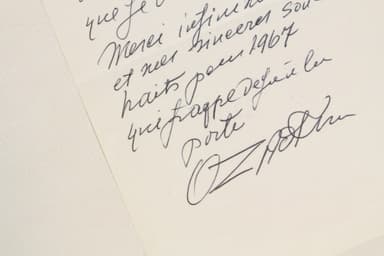 que je
Merci infiniment
et mes sincères sou-
haits pour 1967
qui frappe déjà à la
porte
OZ